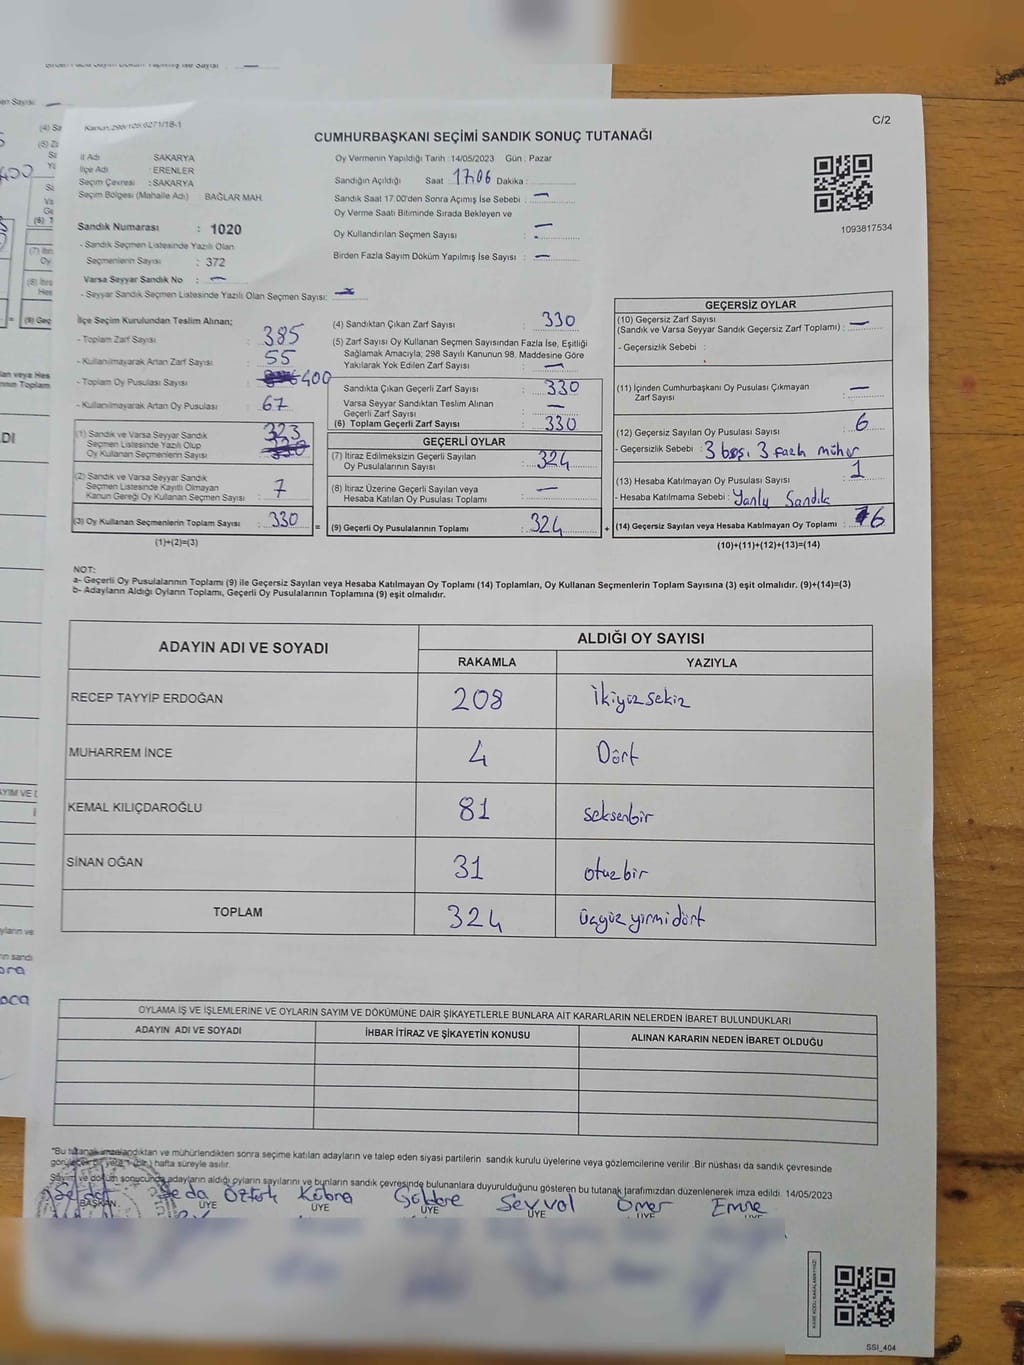 Kanun:298/109,6271/18-1
C/2
CUMHURBAŞKANI SEÇİMİ SANDIK SONUÇ TUTANAĞI
İl Adı SAKARYA
İlçe Adı : ERENLER
Seçim Çevresi : SAKARYA
Seçim Bölgesi (Mahalle Adı) BAĞLAR MAH.
Sandık Numarası : 1020
- Sandık Seçmen Listesinde Yazılı Olan
Seçmenlerin Sayısı : 372
Varsa Seyyar Sandık No : —
- Seyyar Sandık Seçmen Listesinde Yazılı Olan Seçmen Sayısı:
Oy Vermenin Yapıldığı Tarih : 14/05/2023 Gün : Pazar
Sandığın Açıldığı Saat 17:06 Dakika :
Sandık Saat 17.00'den Sonra Açımış İse Sebebi : —
Oy Verme Saati Bitiminde Sırada Bekleyen ve
Oy Kullandırılan Seçmen Sayısı : —
Birden Fazla Sayım Döküm Yapılmış İse Sayısı : —
1093817534
İlçe Seçim Kurulundan Teslim Alınan;
- Toplam Zarf Sayısı : 385
- Kullanılmayarak Artan Zarf Sayısı : 55
- Toplam Oy Pusulası Sayısı : 400
- Kullanılmayarak Artan Oy Pusulası : 67
(1) Sandık ve Varsa Seyyar Sandık
Seçmen Listesinde Yazılı Olup
Oy Kullanan Seçmenlerin Sayısı : 323
(2) Sandık ve Varsa Seyyar Sandık
Seçmen Listesinde Kayıtlı Olmayan
Kanun Gereği Oy Kullanan Seçmen Sayısı : 7
(3) Oy Kullanan Seçmenlerin Toplam Sayısı : 330
(1)+(2)=(3)
(4) Sandıktan Çıkan Zarf Sayısı : 330
(5) Zarf Sayısı Oy Kullanan Seçmen Sayısından Fazla İse, Eşitliği
Sağlamak Amacıyla; 298 Sayılı Kanunun 98. Maddesine Göre
Yakılarak Yok Edilen Zarf Sayısı : —
Sandıkta Çıkan Geçerli Zarf Sayısı : 330
Varsa Seyyar Sandıktan Teslim Alınan
Geçerli Zarf Sayısı : —
(6) Toplam Geçerli Zarf Sayısı : 330
GEÇERLİ OYLAR
(7) İtiraz Edilmeksizin Geçerli Sayılan
Oy Pusulalarının Sayısı : 324
(8) İtiraz Üzerine Geçerli Sayılan veya
Hesaba Katılan Oy Pusulası Toplamı : —
(9) Geçerli Oy Pusulalarının Toplamı : 324
GEÇERSİZ OYLAR
(10) Geçersiz Zarf Sayısı
(Sandık ve Varsa Seyyar Sandık Geçersiz Zarf Toplamı) : —
- Geçersizlik Sebebi :
(11) İçinden Cumhurbaşkanı Oy Pusulası Çıkmayan
Zarf Sayısı : —
(12) Geçersiz Sayılan Oy Pusulası Sayısı : 6
- Geçersizlik Sebebi : 3 boş, 3 fazla mühür
(13) Hesaba Katılmayan Oy Pusulası Sayısı : 1
- Hesaba Katılmama Sebebi : Yanlış Sandık
(14) Geçersiz Sayılan veya Hesaba Katılmayan Oy Toplamı : 6
(10)+(11)+(12)+(13)=(14)
NOT:
a- Geçerli Oy Pusulalarının Toplamı (9) ile Geçersiz Sayılan veya Hesaba Katılmayan Oy Toplamı (14) Toplamları, Oy Kullanan Seçmenlerin Toplam Sayısına (3) eşit olmalıdır. (9)+(14)=(3)
b- Adayların Aldığı Oyların Toplamı, Geçerli Oy Pusulalarının Toplamına (9) eşit olmalıdır.
ADAYIN ADI VE SOYADI ALDIĞI OY SAYISI
RAKAMLA YAZIYLA
RECEP TAYYİP ERDOĞAN 208 İkiyüzsekiz
MUHARREM İNCE 4 Dört
KEMAL KILIÇDAROĞLU 81 seksenbir
SİNAN OĞAN 31 otuzbir
TOPLAM 324 üçyüzyirmidört
OYLAMA İŞ VE İŞLEMLERİNE VE OYLARIN SAYIM VE DÖKÜMÜNE DAİR ŞİKAYETLERLE BUNLARA AİT KARARLARIN NELERDEN İBARET BULUNDUKLARI
ADAYIN ADI VE SOYADI İHBAR İTİRAZ VE ŞİKAYETİN KONUSU ALINAN KARARIN NEDEN İBARET OLDUĞU
"Bu tutanak imzalandıktan ve mühürlendikten sonra seçime katılan adayların ve talep eden siyasi partilerin sandık kurulu üyelerine veya gözlemcilerine verilir .Bir nüshası da sandık çevresinde
görülecek bir yere 1 (bir) hafta süreyle asılır.
Sayım ve döküm sonucunda adayların aldığı oyların sayılarını ve bunların sandık çevresinde bulunanlara duyurulduğunu gösteren bu tutanak tarafımızdan düzenlenerek imza edildi. 14/05/2023
Seda Öztürk Kübra Seyval Ömer Emre
BAŞKAN ÜYE ÜYE ÜYE ÜYE ÜYE
SSI_404